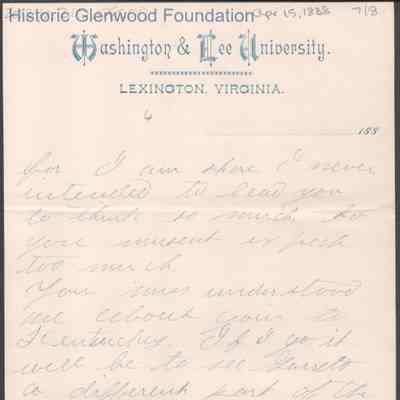 Historic Glenwood Foundation
Apr 15, 1888 7/8
Washington & Lee University.
LEXINGTON, VIRGINIA.
6
188
for I am shore I never
intended to lead you
to think so much so
you musent expect
too much.
You miss understood
me about going to
Kentucky. If I go it
will be to see
a different part of the